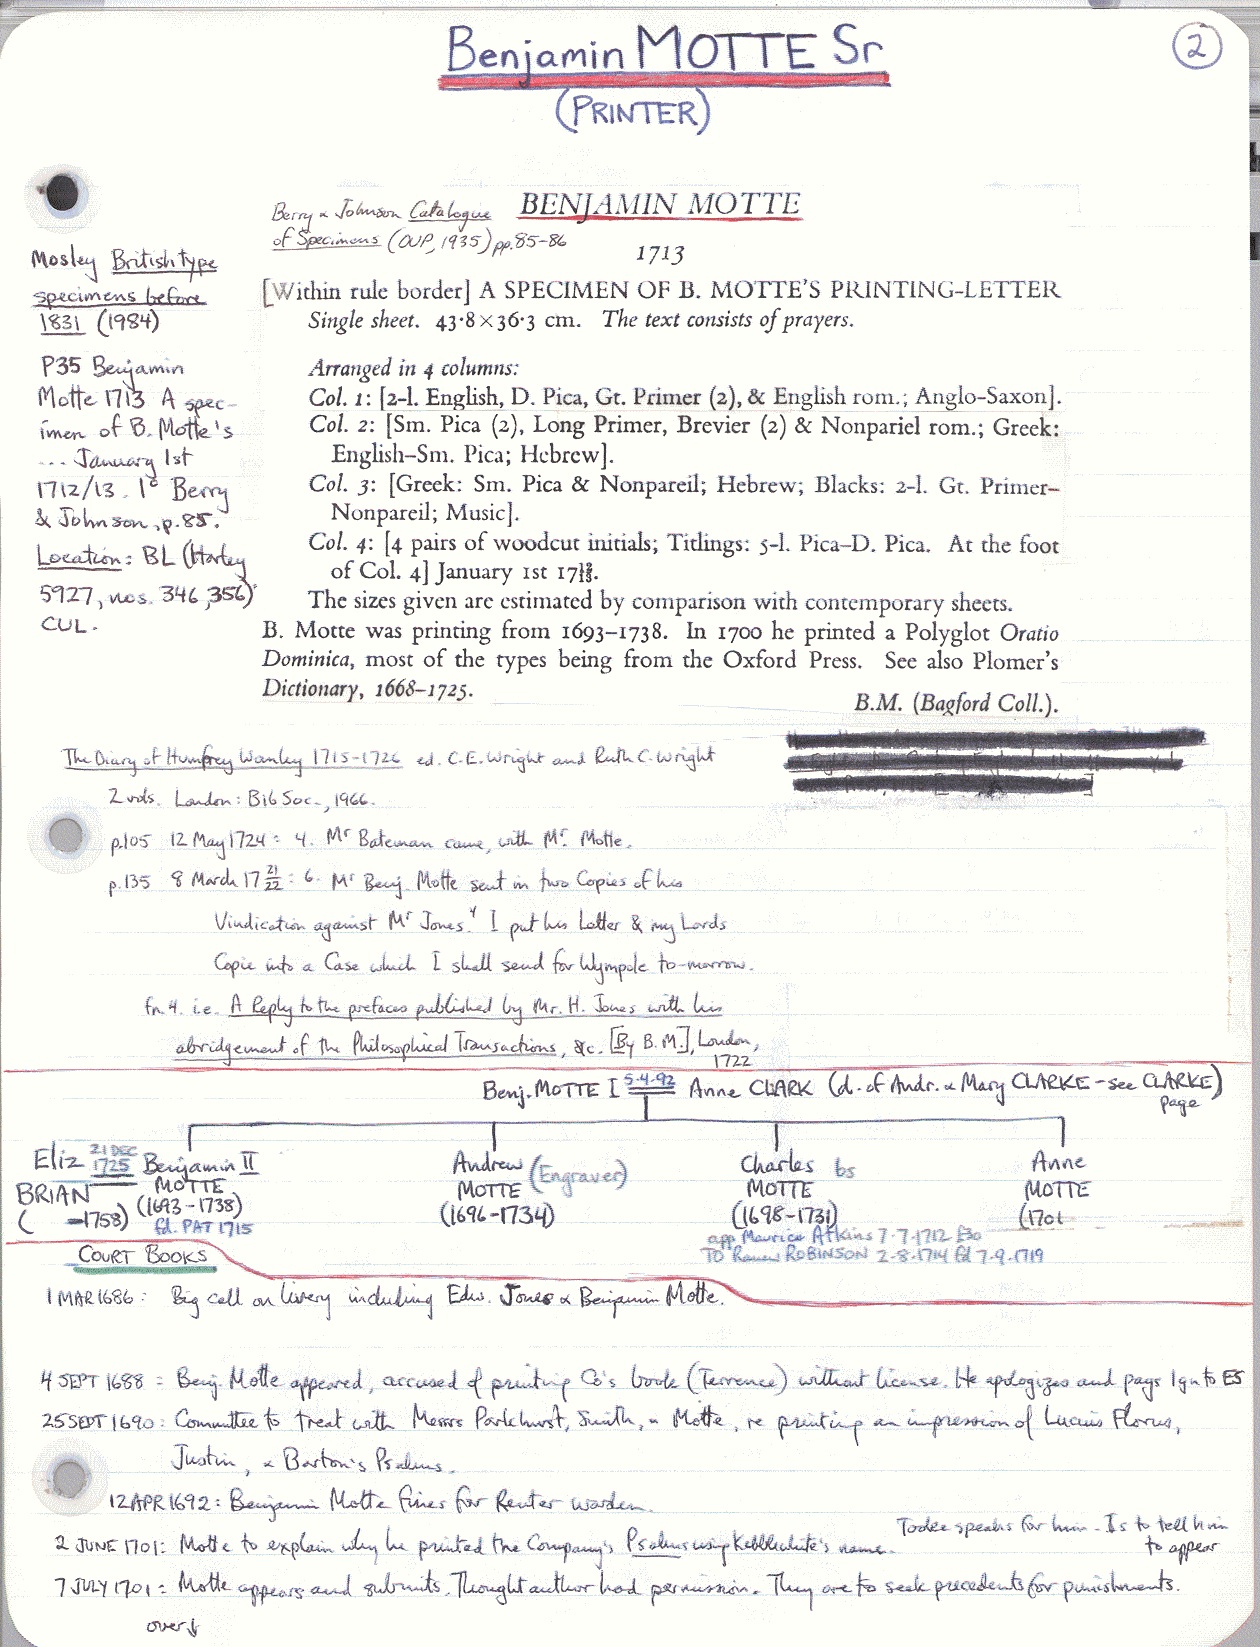 Benjamin MOTTE Sr
2
(PRINTER)
Berry & Johnson Catalogue
of Specimens (OUP, 1935) pp.85-86
BENJAMIN MOTTE
1713
[Within rule border] A SPECIMEN OF B. MOTTE'S PRINTING-LETTER
Single sheet. 43·8×36·3 cm. The text consists of prayers.
Arranged in 4 columns:
Col. 1: [2-l. English, D. Pica, Gt. Primer (2), & English rom.; Anglo-Saxon].
Col. 2: [Sm. Pica (2), Long Primer, Brevier (2) & Nonpariel rom.; Greek:
English–Sm. Pica; Hebrew].
Col. 3: [Greek: Sm. Pica & Nonpareil; Hebrew; Blacks: 2-l. Gt. Primer–
Nonpareil; Music].
Col. 4: [4 pairs of woodcut initials; Titlings: 5-l. Pica–D. Pica. At the foot
of Col. 4] January 1st 17 12/13.
The sizes given are estimated by comparison with contemporary sheets.
B. Motte was printing from 1693–1738. In 1700 he printed a Polyglot Oratio
Dominica, most of the types being from the Oxford Press. See also Plomer's
Dictionary, 1668–1725.
B.M. (Bagford Coll.).
Mosley British type
specimens before
1831 (1984)
P35 Benjamin
Motte 1713 A spec-
imen of B. Motte's
... January 1st
1712/13. 1° Berry
& Johnson, p.85.
Location: BL (Harley
5927, nos. 346, 356)
CUL.
The Diary of Humfrey Wanley 1715-1726 ed. C.E. Wright and Ruth C. Wright
2 vols. London: Bib Soc., 1966.
p.105 12 May 1724: 4. Mr Bateman came, with Mr. Motte.
p.135 8 March 17 21/22: 6. Mr Benj. Motte sent in two Copies of his
Vindication against Mr Jones.4 I put his Letter & my Lords
Copie into a Case which I shall send for Wympole to-morrow.
fn.4. i.e. A Reply to the prefaces published by Mr. H. Jones with his
abridgement of the Philosophical Transactions, &c. [By B.M.], London,
1722
Benj. MOTTE I 5-4-92 Anne CLARK (d. of Andr. & Mary CLARKE - see CLARKE)
page
Eliz 21 DEC 1725 Benjamin II
BRIAN MOTTE
( -1758) (1693-1738)
fd. PAT 1715
Andrew (Engraver)
MOTTE
(1696-1734)
Charles bs
MOTTE
(1698-1731)
app Maurice Atkins 7-7-1712
TO Ranew ROBINSON 2-8-1714 fd 7-9-1719
Anne
MOTTE
(1701
COURT BOOKS
1 MAR 1686: Big call on livery including Edw. Jones & Benjamin Motte.
4 SEPT 1688: Benj. Motte appeared, accused of printing Co's book (Terrence) without license. He apologizes and pays 1gn to ES
25 SEPT 1690: Committee to treat with Messrs Parkhurst, Smith, & Motte, re printing an impression of Lucius Florus,
Justin, & Barton's Psalms.
12 APR 1692: Benjamin Motte fines for Renter warden.
2 JUNE 1701: Motte to explain why he printed the Company's Psalms using Kebblewhite's name.
Tooke speaks for him - Is to tell him
to appear
7 JULY 1701: Motte appears and submits. Thought author had permission. They are to seek precedents for punishments.
over↓